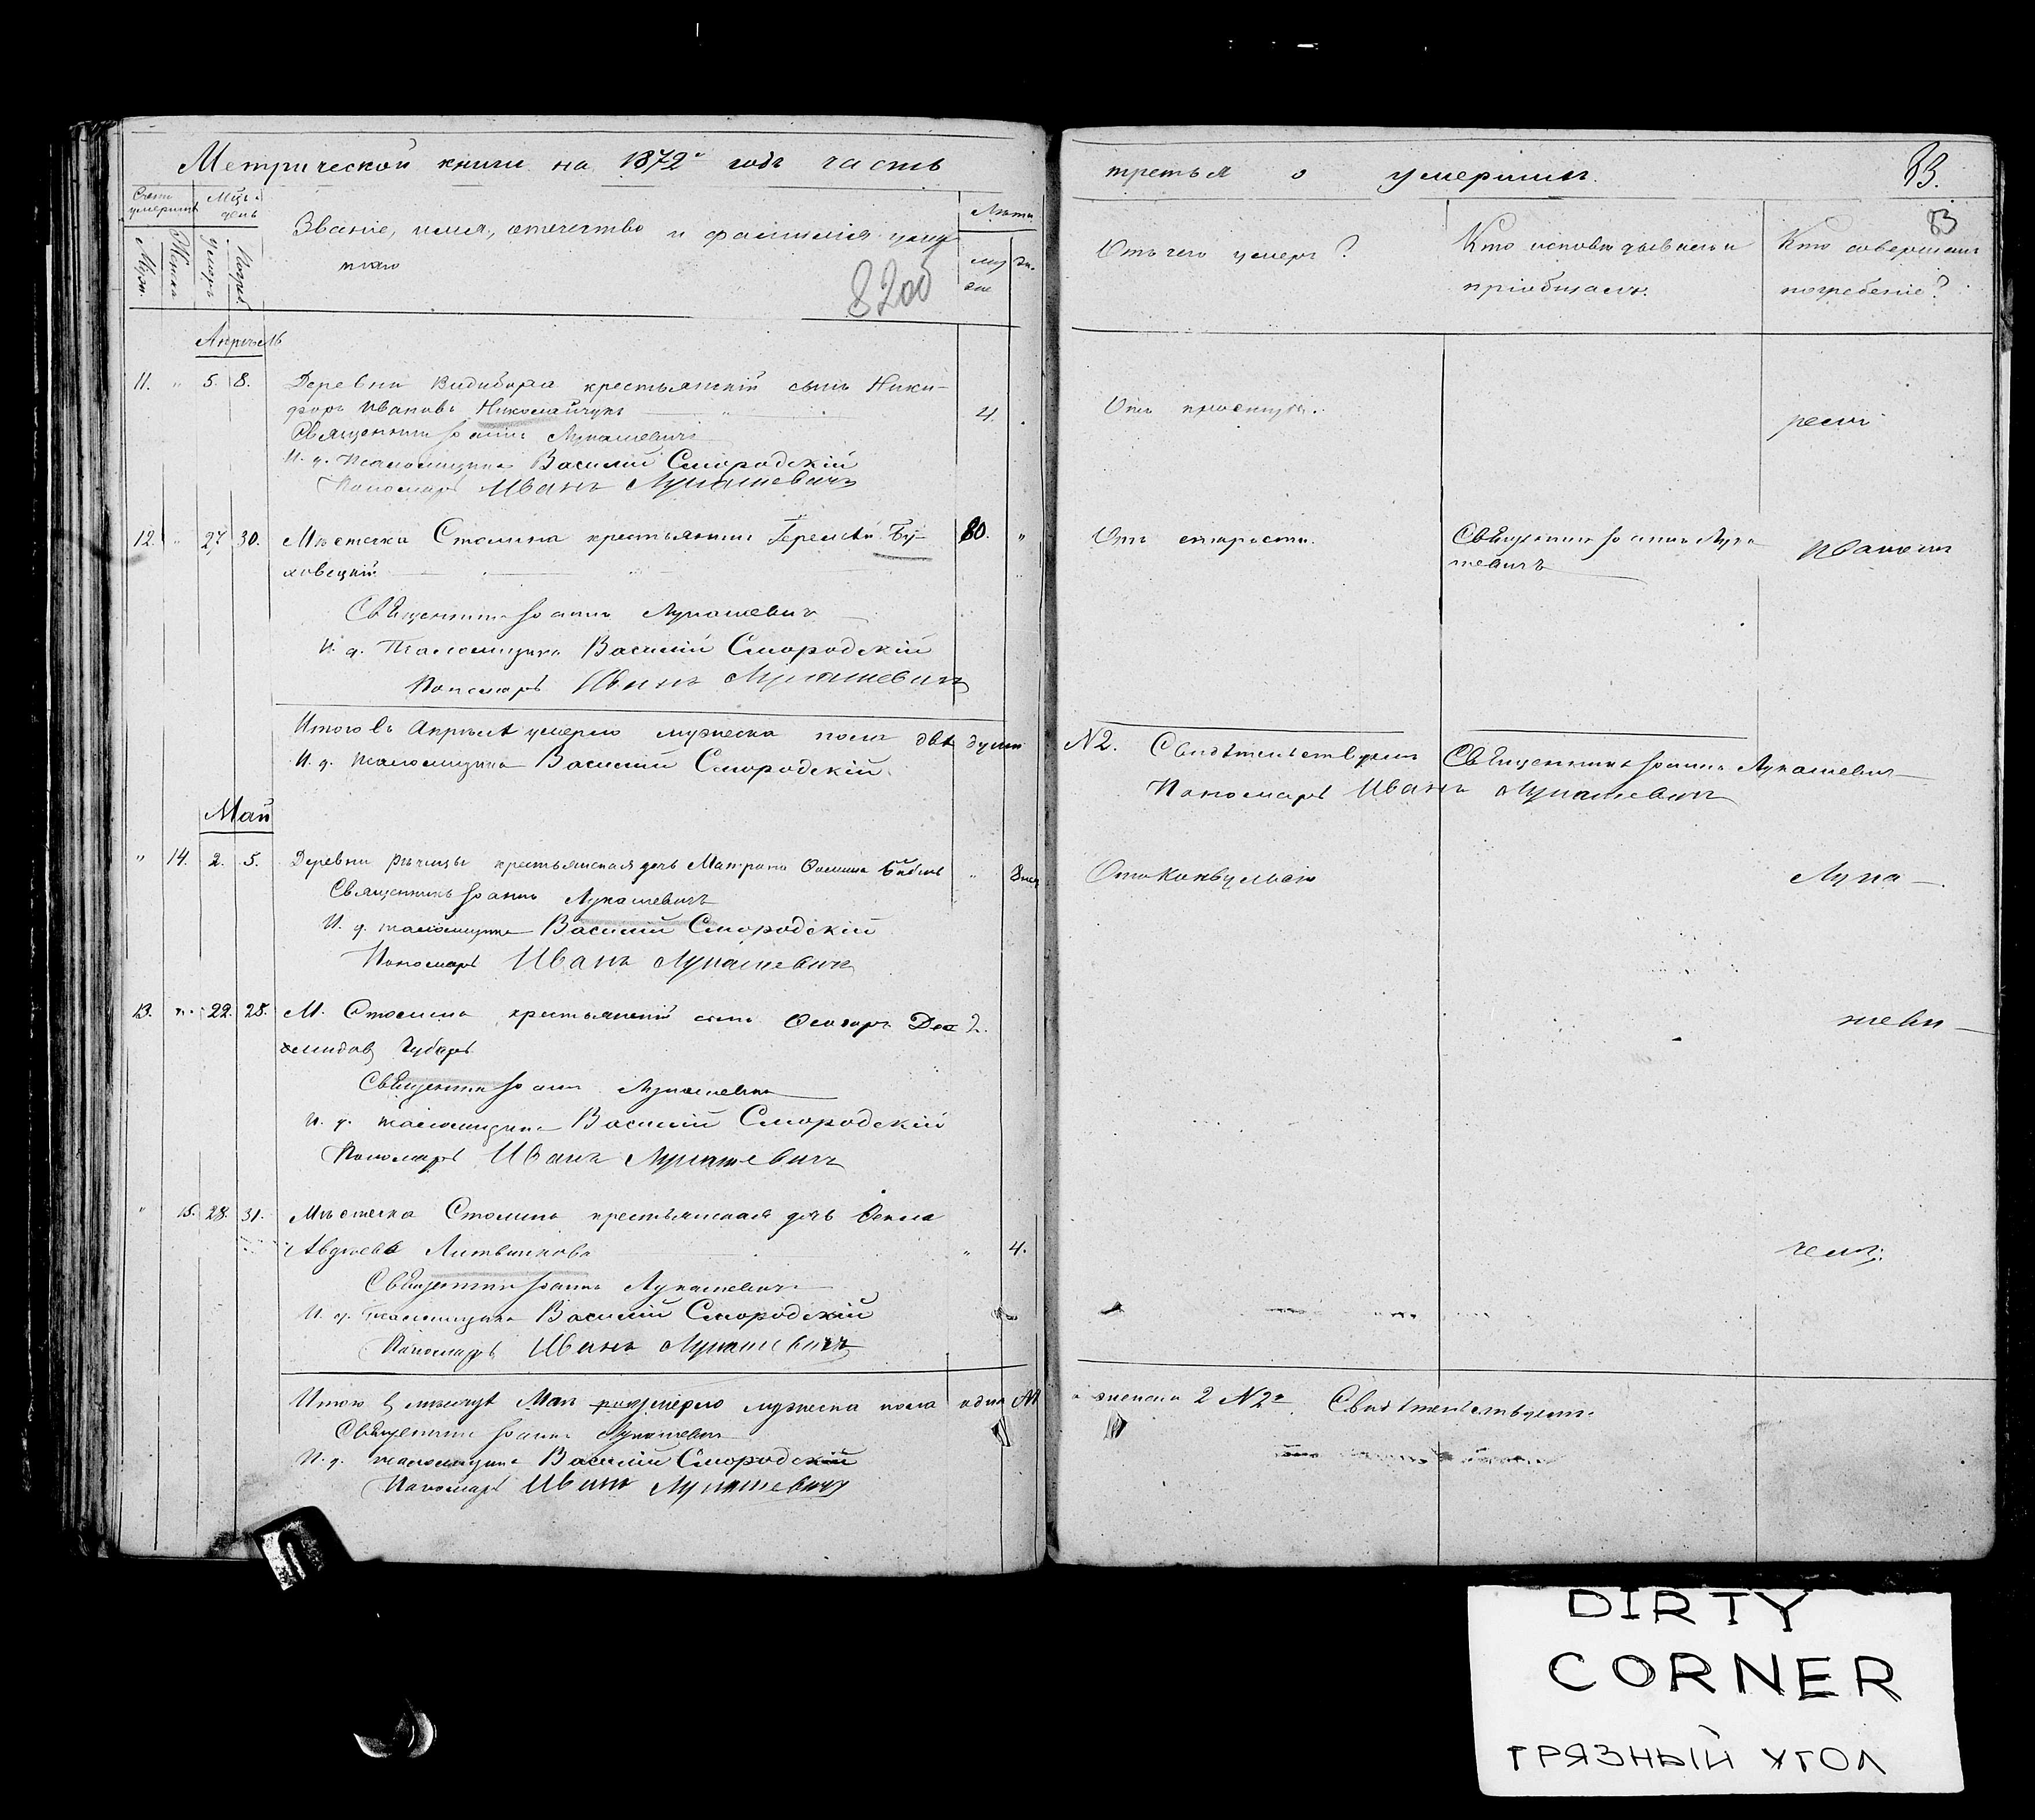 Метрической книги на 1872й годъ часть
Счетъ умершихъ
Мцъ и день
Званіе, имя, отечество и фамилія умер
шаго
Лѣта
Мужск.
Женска
умеръ
Погреб
муж
ж.
ска
8200
Апрѣль
11. " 5. 8. Деревни Видибора крестьянскій сынъ Ники-
форъ Ивановъ Николайчукъ 4.
Священникъ Іоаннъ Лукашевичъ
И. д. Псаломщика Василій Смородскій
Пономарь Иванъ Лукашевичъ
12. " 27 30. Мѣстечка Столина крестьянинъ Іеремѣй Бу- 80. "
ховецкій
Священникъ Іоаннъ Лукашевичъ
И. д. Псаломщика Василій Смородскій
Пономарь Иванъ Лукашевичъ
Итого въ Апрѣлѣ умерло мужеска пола двѣ души
И. д. псаломщика Василій Смородскій
Май
" 14. 2. 5. Деревни Рѣчицы крестьянская дочь Матрона " 8 мѣс
Священникъ Іоаннъ Лукашевичъ
И. д. псаломщика Василій Смородскій
Пономарь Иванъ Лукашевичъ
13. " 22. 25. М. Столина крестьянскій сынъ 2.
Губаръ
Священникъ Іоаннъ Лукашевичъ
И. д. псаломщика Василій Смородскій
Пономарь Иванъ Лукашевичъ
" 15. 28. 31. Мѣстечка Столина крестьянская дочь Ѳекла
Авдѣева Литвинкова " 4.
Священникъ Іоаннъ Лукашевичъ
И. д. псаломщика Василій Смородскій
Пономарь Иванъ Лукашевичъ
Итого въ мѣсяцѣ Маѣ умерло мужеска пола одна
Священникъ Іоаннъ Лукашевичъ
И. д. псаломщика Василій Смородскій
Пономарь Иванъ Лукашевичъ
третья о умершихъ.
33.
33
Отъ чего умеръ?
Кто исповѣдывалъ и
пріобщалъ.
Кто совершалъ
погребеніе?
Отъ простуды.
Отъ старости.
Священникъ Іоаннъ Лука
шевичъ
N2. Свидѣтельствуемъ Священникъ Іоаннъ Лукашевичъ
Пономарь Иванъ Лукашевичъ
Отъ конвульсіи
Лука-
шеви-
чемъ.
и женска 2 N2я. Свидѣтельствуемъ:
DIRTY
CORNER
ГРЯЗНЫЙ УГОЛ